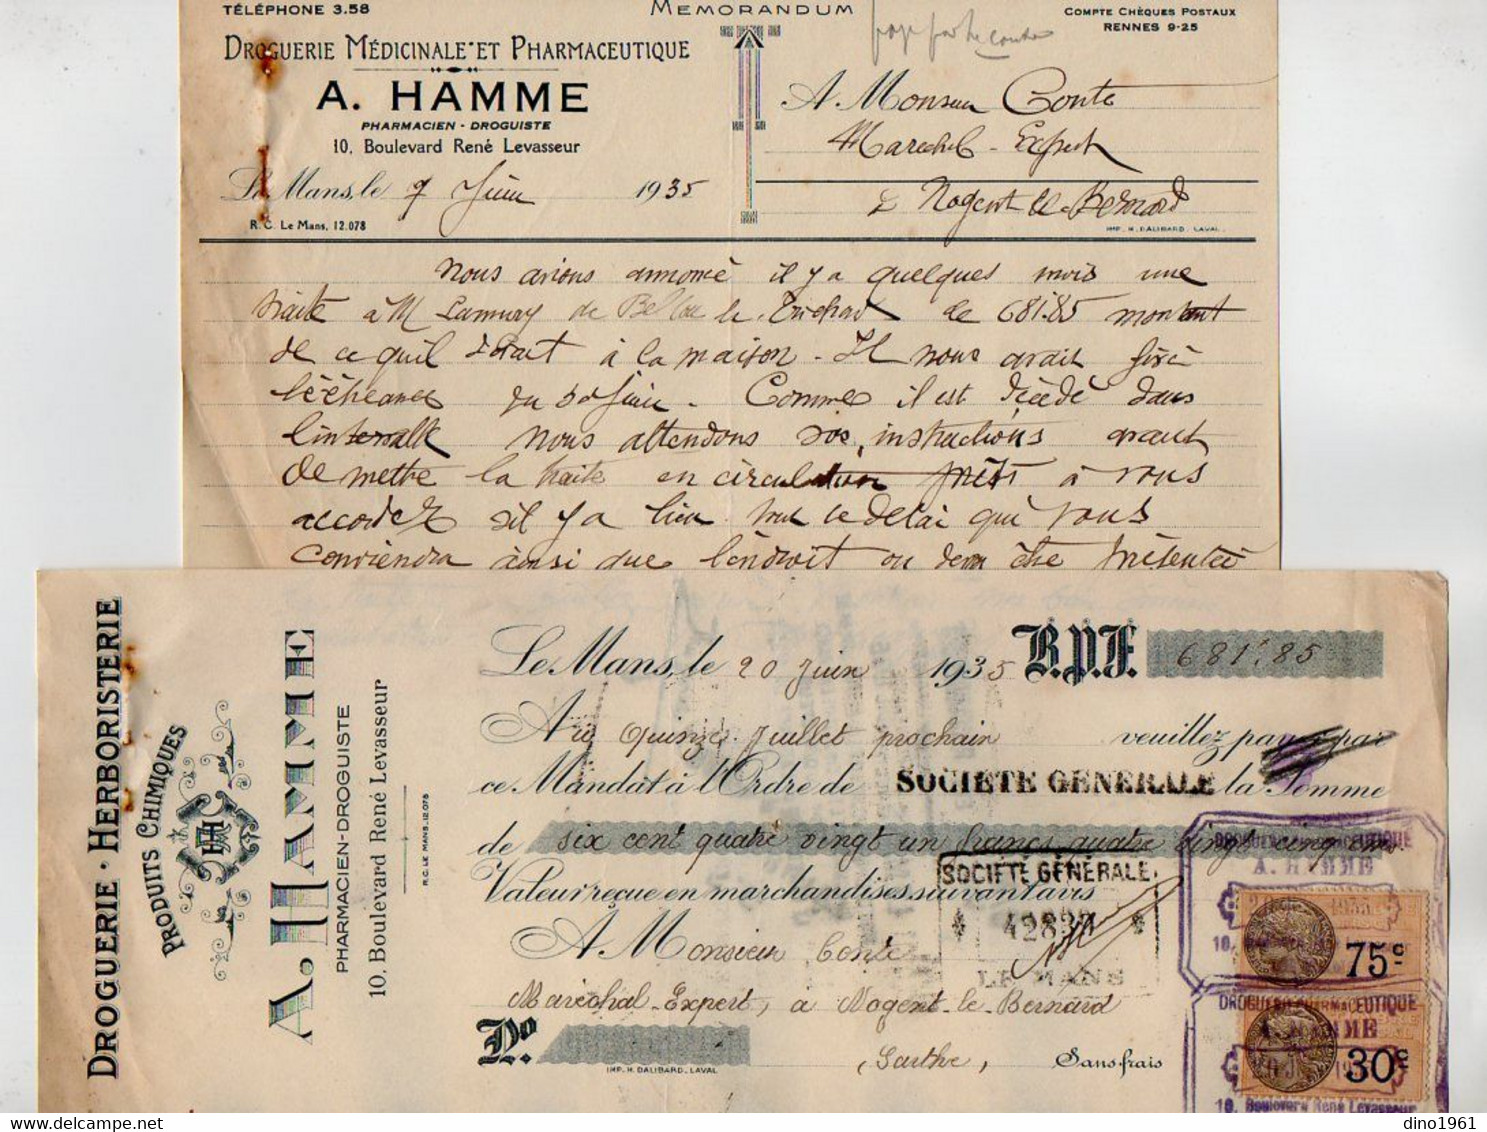 TÉLÉPHONE 3.58
MEMORANDUM
COMPTE CHÈQUES POSTAUX
RENNES 9-25
DROGUERIE MÉDICINALE ET PHARMACEUTIQUE
A. HAMME
PHARMACIEN - DROGUISTE
10, Boulevard René Levasseur
Le Mans, le 7 Juin 1935
R.C. Le Mans, 12.078
A Monsieur Conte
Marechal - Expert
à Nogent le Bernard
IMP. H. DALIBARD. LAVAL.
Nous avions annoncé il y a quelques mois une
traite à M Lamury de Bellou le Trichard de 681.85 montant
de ce quil devait à la maison. Il nous avait fixé
l'échéance du 30 Juin. Comme il est décédé dans
l'intervalle nous attendons vos instructions avant
de mettre la traite en circulation prêts à vous
accorder sil y a lieu tout le delai qui vous
conviendra ainsi que l'endroit ou devra être présentée
DROGUERIE - HERBORISTERIE
PRODUITS CHIMIQUES
A. HAMME
PHARMACIEN-DROGUISTE
10, Boulevard René Levasseur
R.C. LE MANS. 12.078
Le Mans, le 20 Juin 1935 B.P.F. 681f.85
Au Quinze Juillet prochain veuillez payer par
ce Mandat à l'Ordre de SOCIETE GENERALE la Somme
de six cent quatre vingt un francs quatre vingt cinq cmes
Valeur reçue en marchandises suivant avis
SOCIÉTÉ GÉNÉRALE
LE MANS
A Monsieur Conte
Maréchal-Expert, à Nogent-le-Bernard
(Sarthe)
No
Sans frais
IMP. H. DALIBARD. LAVAL
DROGUERIE PHARMACEUTIQUE
A. HAMME
75c
DROGUERIE PHARMACEUTIQUE
A. HAMME
30c
10, Boulevard René Levasseur
dino1961